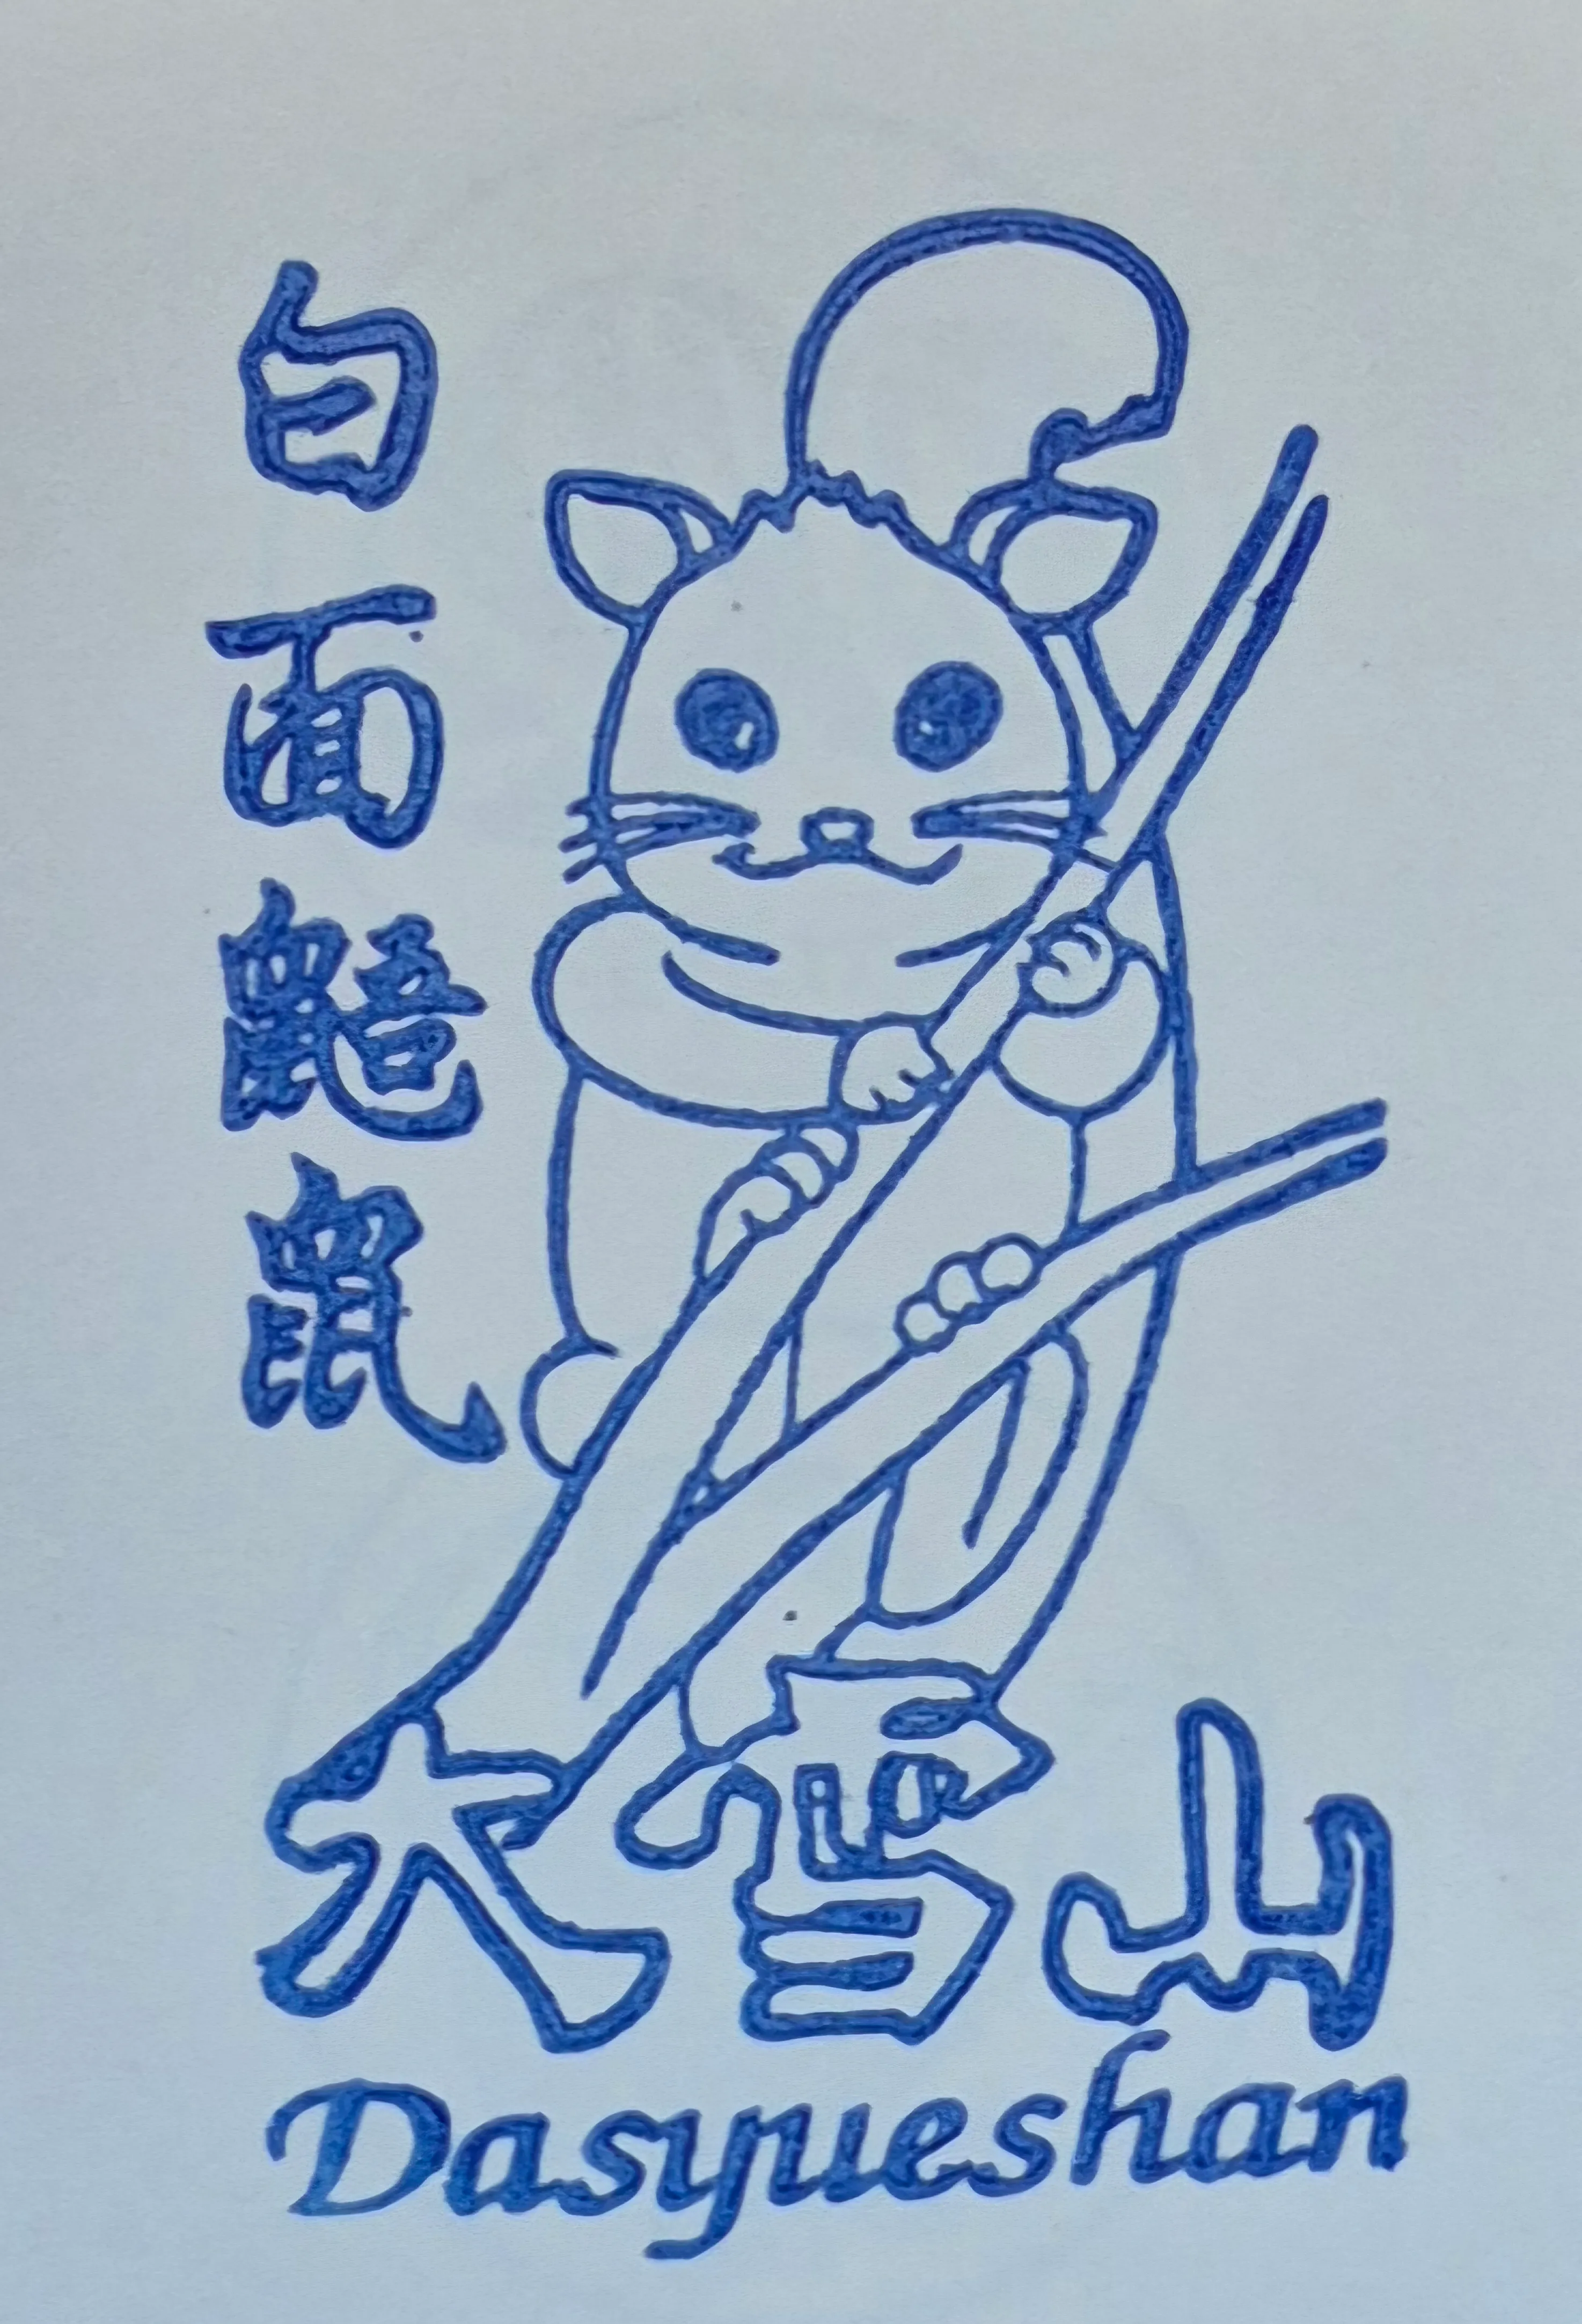 白面鼯鼠
大雪山
Dasyueshan